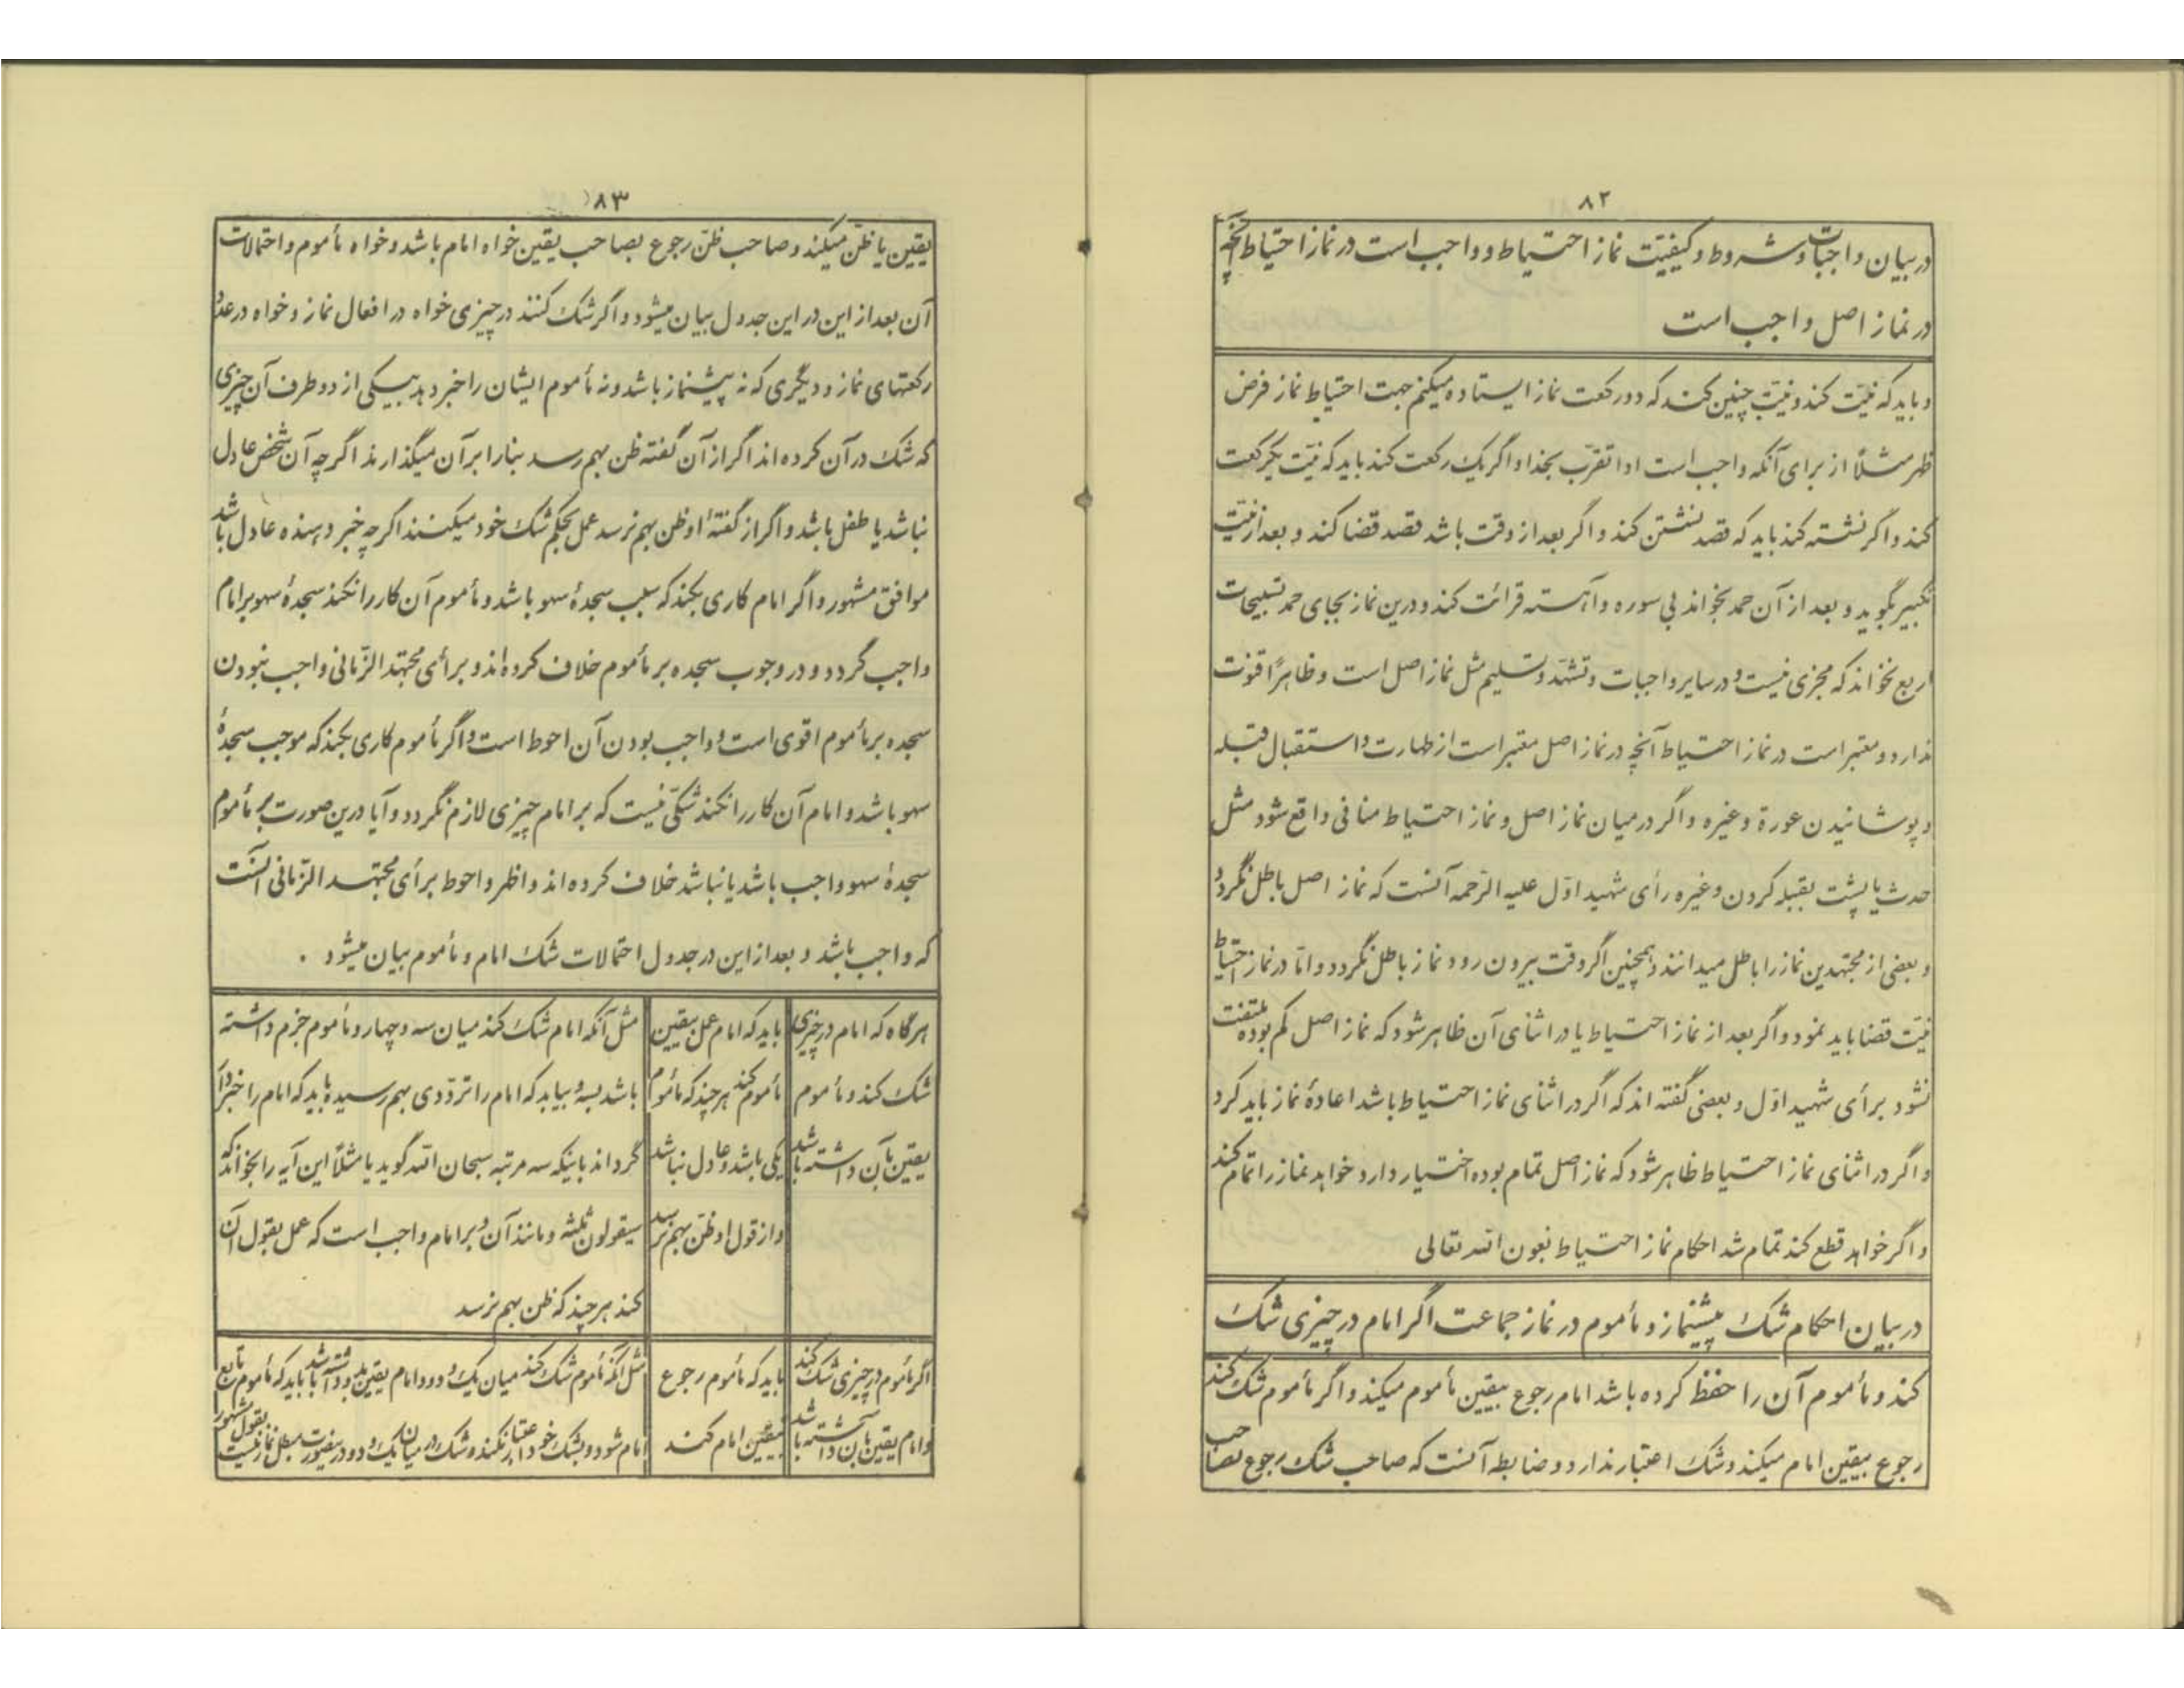 ۸۲
در بیان واجبات و شروط و کیفیّت نماز احتیاط و واجب است در نماز احتیاط آنچه
در نماز اصل واجب است
و باید که نیّت کند و نیّت چنین کند که دو رکعت نماز ایستاده میکنم جهت احتیاط نماز فرض
ظهر مثلاً از برای آنکه واجب است ادا تقرّب بخدا و اگر یک رکعت کند باید که نیّت یکرکعت
کند و اگر نشسته کند باید که قصد نشستن کند و اگر بعد از وقت باشد قصد قضا کند و بعد از نیّت
تکبیر بگوید و بعد از آن حمد بخواند بی سوره و آهسته قرائت کند و درین نماز بجای حمد تسبیحات
اربع نخواند که مجزی نیست و در سایر واجبات و تشهّد و تسلیم مثل نماز اصل است و ظاهراً قنوت
ندارد و معتبر است در نماز احتیاط آنچه در نماز اصل معتبر است از طهارت و استقبال قبله
و پوشانیدن عورة و غیره و اگر در میان نماز اصل و نماز احتیاط منافی واقع شود مثل
حدث یا پشت بقبله کردن و غیره رأی شهید اوّل علیه الرّحمه آنست که نماز اصل باطل نگردد
و بعضی از مجتهدین نماز را باطل میدانند و همچنین اگر وقت بیرون رود نماز باطل نگردد و امّا در نماز احتیاط
نیّت قضا باید نمود و اگر بعد از نماز احتیاط یا در اثنای آن ظاهر شود که نماز اصل کم بوده ملتفت
نشود برأی شهید اوّل و بعضی گفته اند که اگر در اثنای نماز احتیاط باشد اعادهٔ نماز باید کرد
و اگر در اثنای نماز احتیاط ظاهر شود که نماز اصل تمام بوده اختیار دارد خواهد نماز را تمام کند
و اگر خواهد قطع کند تمام شد احکام نماز احتیاط بعون الله تعالی
در بیان احکام شک پیشنماز و مأموم در نماز جماعت اگر امام در چیزی شک
کند و مأموم آن را حفظ کرده باشد امام رجوع بیقین مأموم میکند و اگر مأموم شک کند
رجوع بیقین امام میکند و شک اعتبار ندارد و ضابطه آنست که صاحب شک رجوع بصاحب
۸۳
یقین یا ظنّ میکند و صاحب ظنّ رجوع بصاحب یقین خواه امام باشد و خواه مأموم و احتمالات
آن بعد از این در این جدول بیان میشود و اگر شک کنند در چیزی خواه در افعال نماز و خواه در عدد
رکعتهای نماز و دیگری که نه پیشنماز باشد و نه مأموم ایشان را خبر دهد بیکی از دو طرف آن چیزی
که شک در آن کرده اند اگر از آن گفته ظن بهم رسد بنا را بر آن میگذارند اگر چه آن شخص عادل
نباشد یا طفل باشد و اگر از گفتهٔ او ظن بهم نرسد عمل بحکم شک خود میکنند اگر چه خبر دهنده عادل باشد
موافق مشهور و اگر امام کاری بکند که سبب سجدهٔ سهو باشد و مأموم آن کار را نکند سجدهٔ سهو بر امام
واجب گردد و در وجوب سجده بر مأموم خلاف کرده اند و برأی مجتهد الزّمانی واجب نبودن
سجده بر مأموم اقوی است و واجب بودن آن احوط است و اگر مأموم کاری بکند که موجب سجدهٔ
سهو باشد و امام آن کار را نکند شکّی نیست که بر امام چیزی لازم نگردد و آیا درین صورت بر مأموم
سجدهٔ سهو واجب باشد یا نباشد خلاف کرده اند و اظهر و احوط برأی مجتهد الزّمانی آنست
که واجب باشد و بعد از این در جدول احتمالات شک امام و مأموم بیان میشود ۰
هرگاه که امام در چیزی
شک کند و مأموم
یقین بآن داشته باشد
باید که امام عمل بیقین
مأموم کند هر چند که مأموم
یکی باشد و عادل نباشد
و از قول او ظن بهم نرسد
مثل آنکه امام شک کند میان سه و چهار و مأموم جزم داشته
باشد بسه و بیابد که امام را تردّدی بهم رسیده باید که امام را خبردار
گرداند باینکه سه مرتبه سبحان الله گوید یا مثلاً این آیه را بخواند که
سیقولون ثلثه و مانند آن و بر امام واجب است که عمل بقول آن
کند هر چند که ظن بهم نرسد
اگر مأموم در چیزی شک کند
و امام یقین بآن داشته باشد
باید که مأموم رجوع
بیقین امام کند
مثل آنکه مأموم شک کند میان یک و دو و امام یقین بدو داشته باشد باید که مأموم تابع
امام شود و بشک خود اعتبار نکند و شک در میان یک و دو درینصورت مبطل نماز نیست بقول مشهور